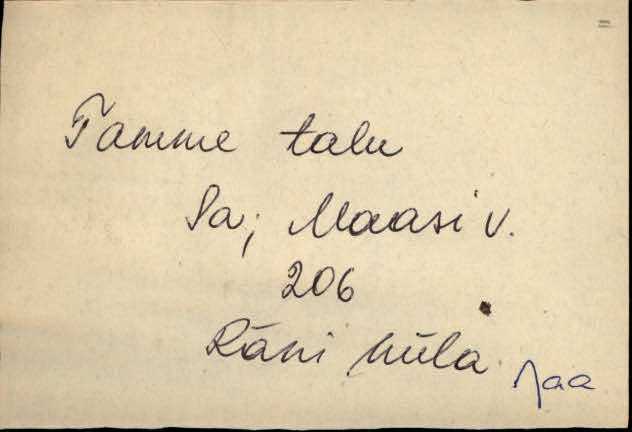 Tamme talu
Sa; Maasi v.
206
Räni küla
Jaa